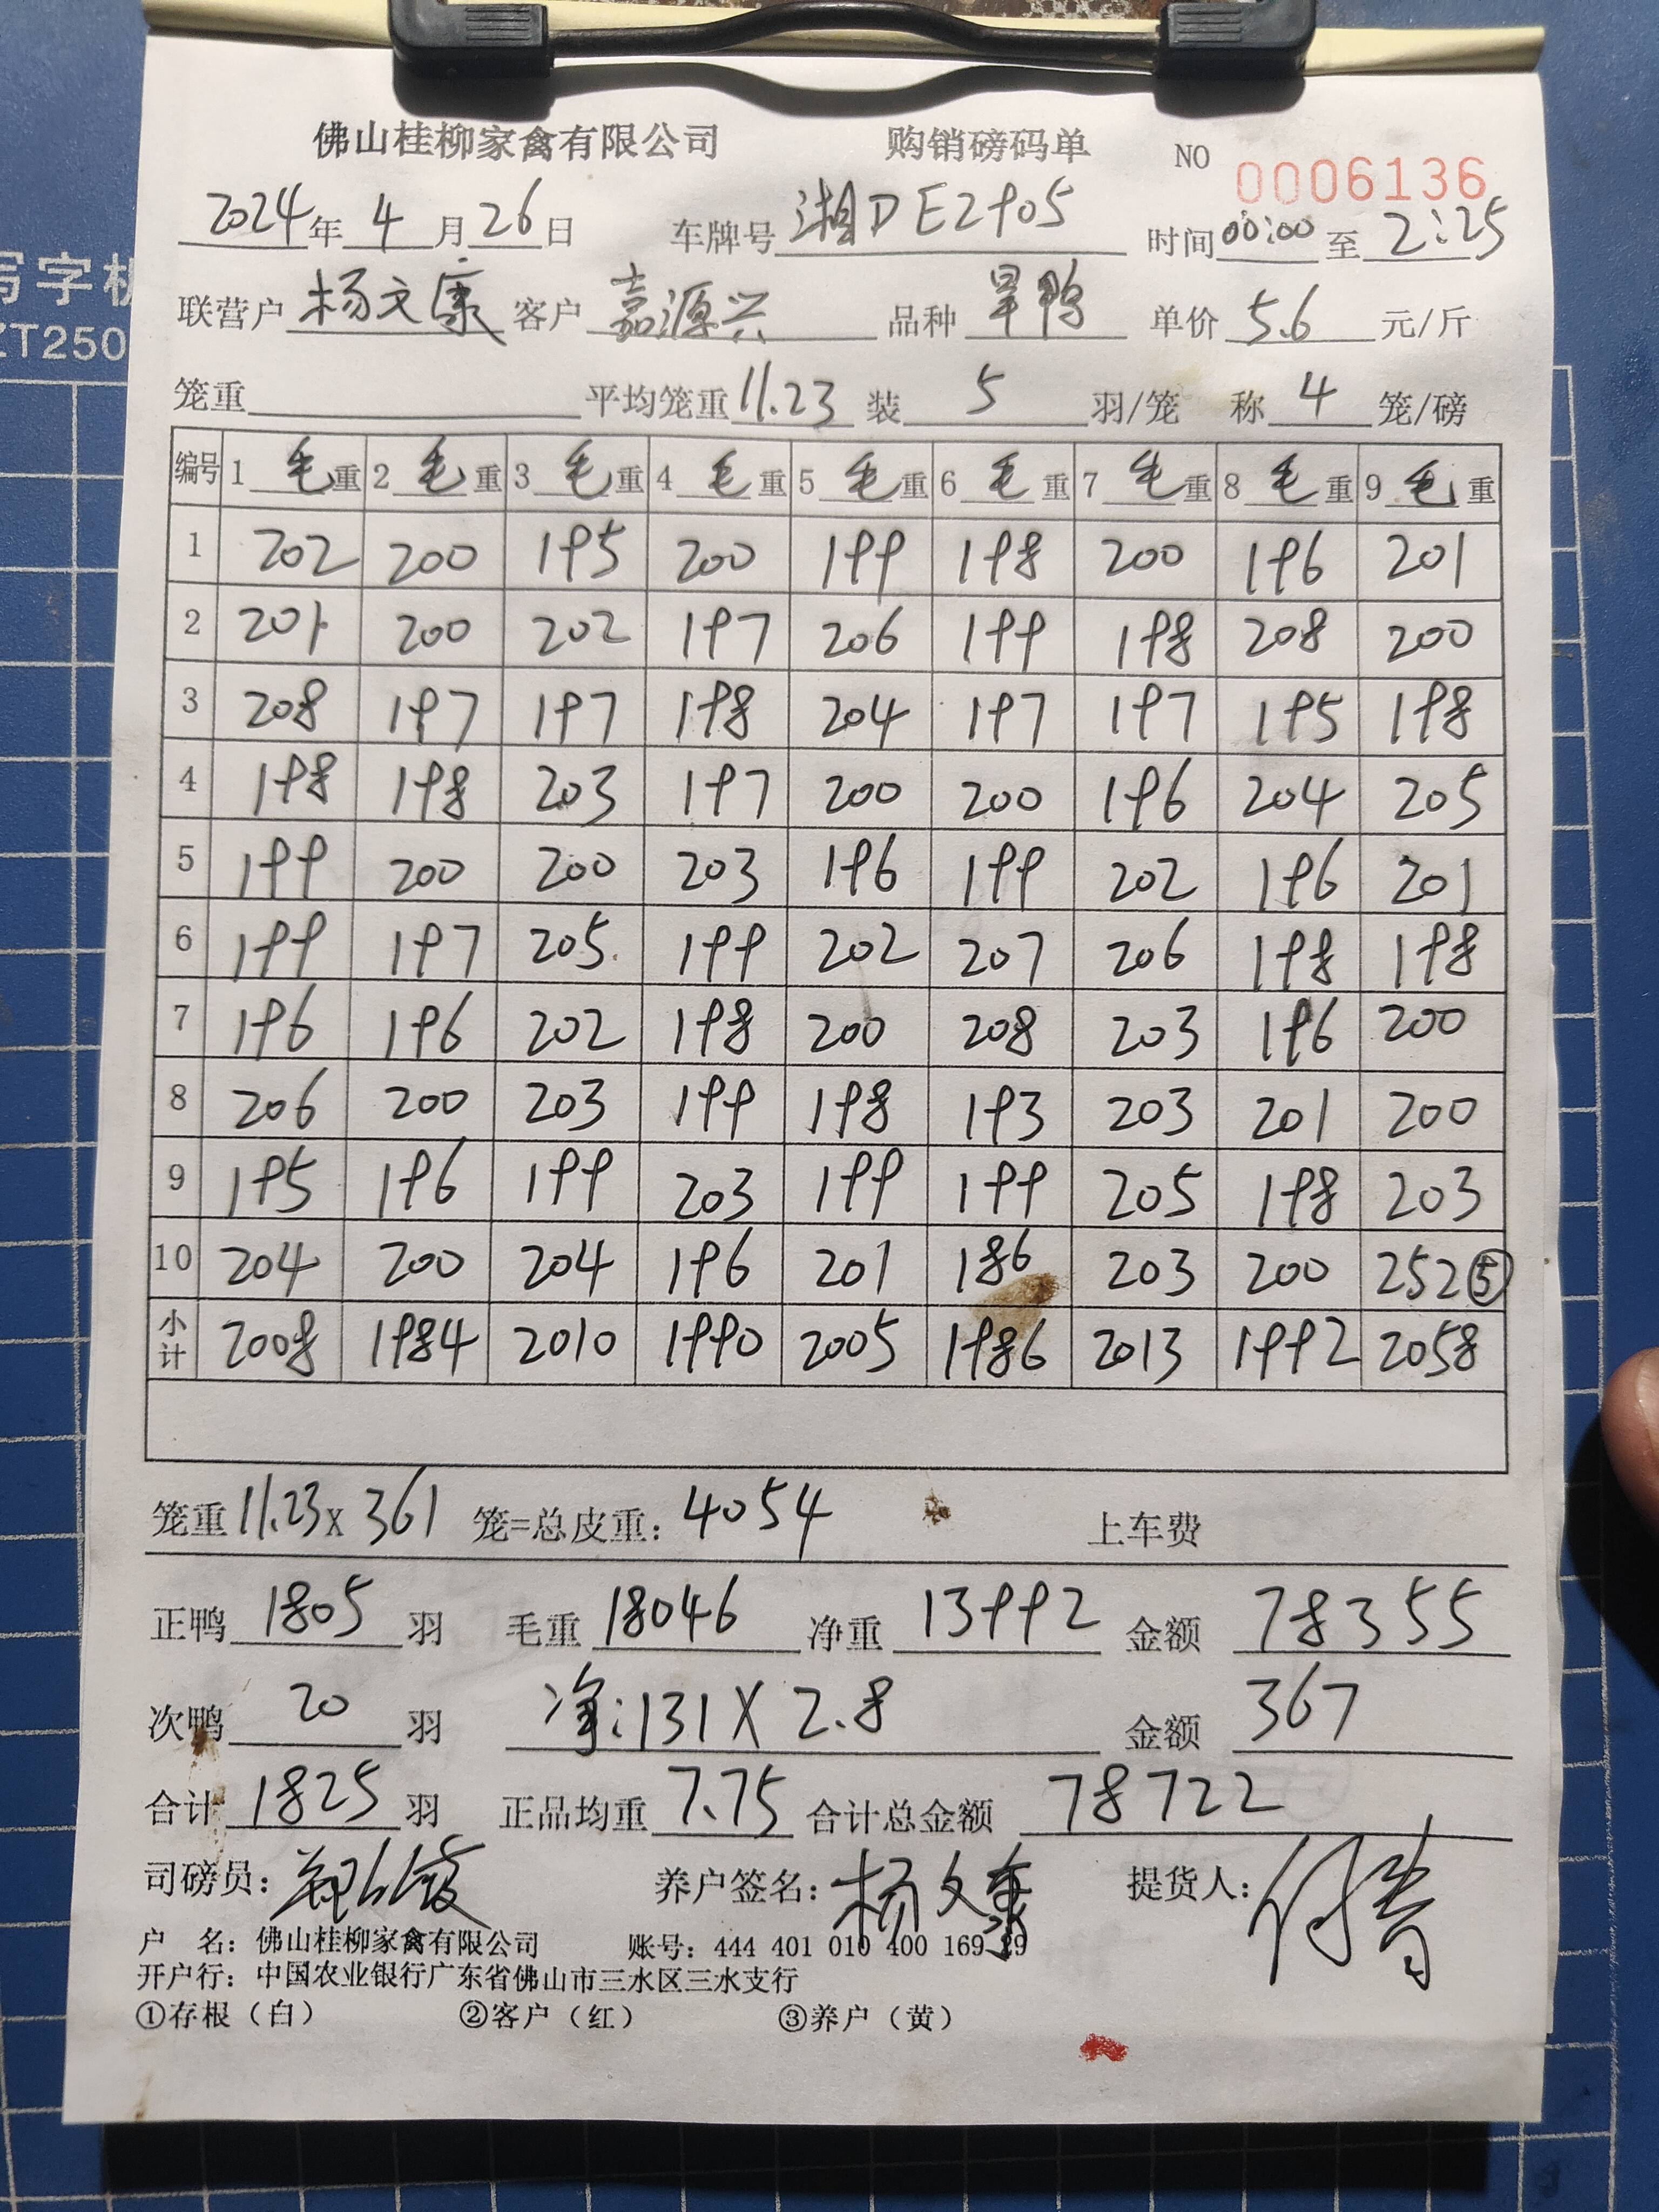 佛山桂柳家禽有限公司 购销磅码单 NO 0006136
2024年4月26日 车牌号 湘DE2905 时间00:00至2:25
联营户 杨文康 客户 嘉源兴 品种 旱鸭 单价 5.6 元/斤
笼重 平均笼重11.23 装 5 羽/笼 称 4 笼/磅
编号 1 毛重 2 毛重 3 毛重 4 毛重 5 毛重 6 毛重 7 毛重 8 毛重 9 毛重
1 202 200 195 200 199 198 200 196 201
2 201 200 202 197 206 199 198 208 200
3 208 197 197 198 204 197 197 195 198
4 198 198 203 197 200 200 196 204 205
5 199 200 200 203 196 199 202 196 201
6 199 197 205 199 202 207 206 198 198
7 196 196 202 198 200 208 203 196 200
8 206 200 203 199 198 193 203 201 200
9 195 196 199 203 199 199 205 198 203
10 204 200 204 196 201 186 203 200 252⑤
小计 2008 1984 2010 1990 2005 1986 2013 1992 2058
笼重11.23×361 笼=总皮重:4054 上车费
正鸭 1805 羽 毛重 18046 净重 13992 金额 78355
次鸭 20 羽 净:131×2.8 金额 367
合计 1825 羽 正品均重 7.75 合计总金额 78722
司磅员: 养户签名:杨文康 提货人:
户 名:佛山桂柳家禽有限公司 账号:444 401 010 400 169 29
开户行:中国农业银行广东省佛山市三水区三水支行
①存根(白) ②客户(红) ③养户(黄)
写字板
ZT250